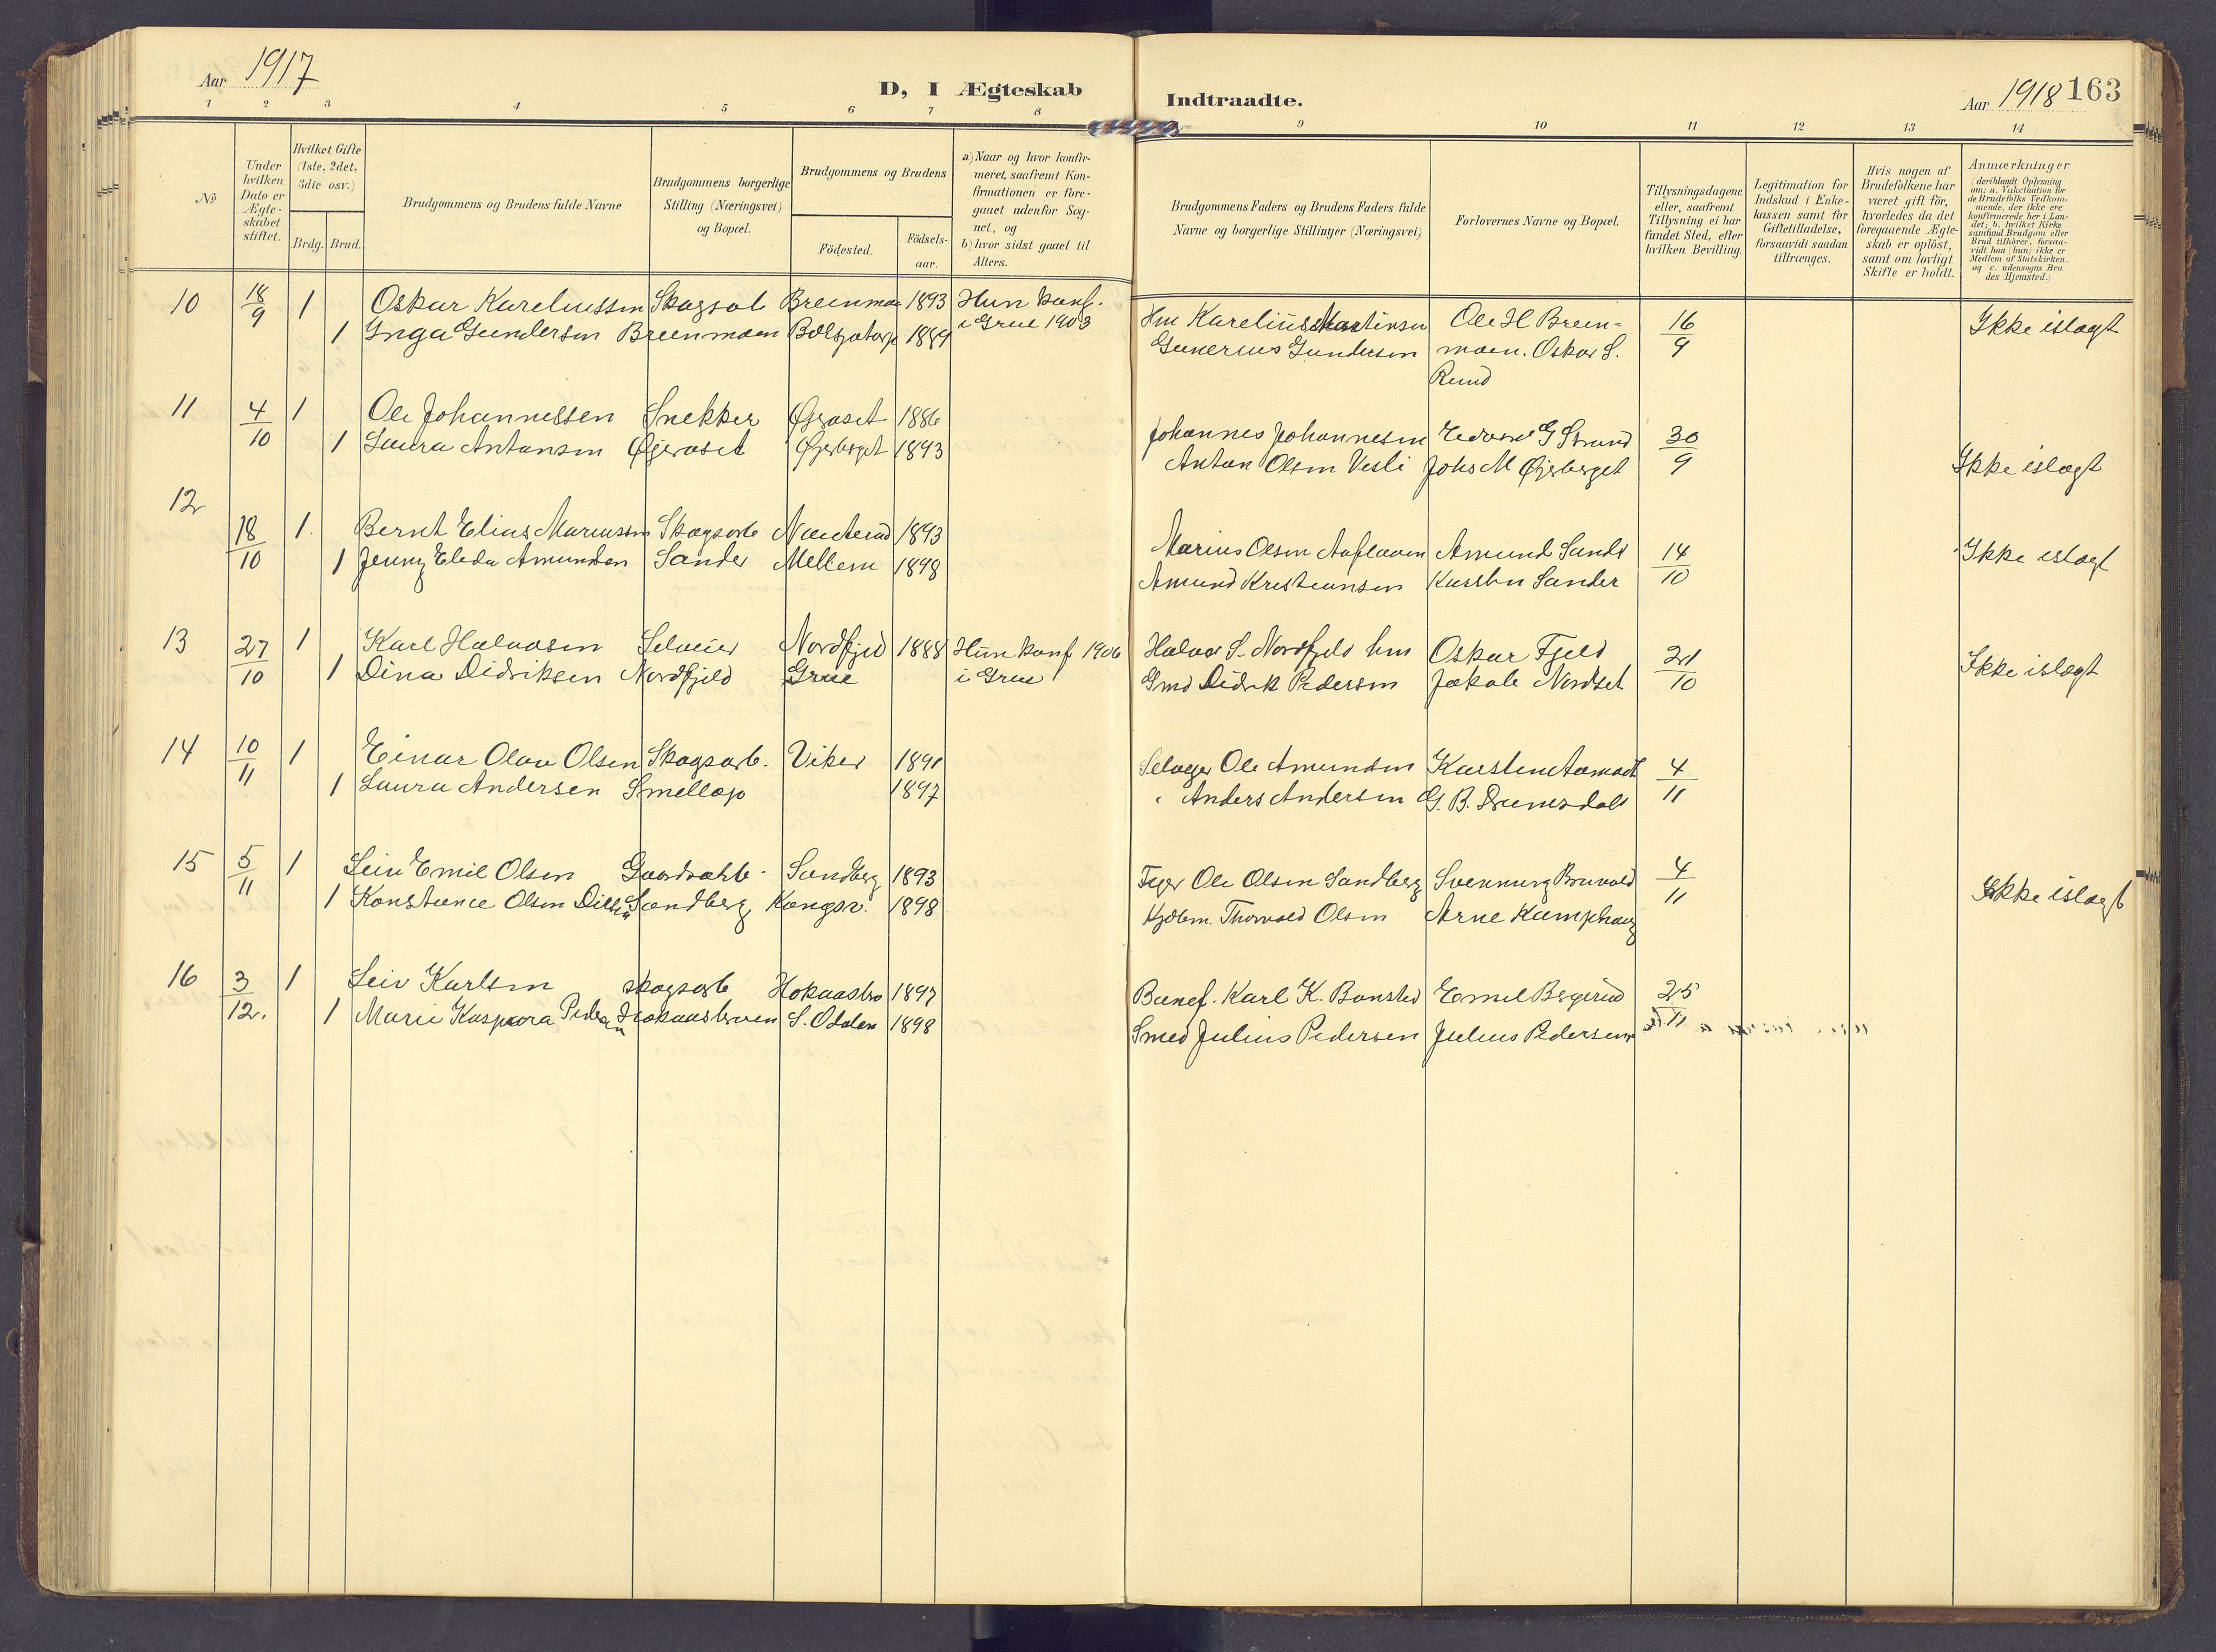 Aar 1917
D, I Ægteskab
Indtraadte.
Aar 1918 163
1 2 3 4 5 6 7 8 9 10 11 12 13 14
№
Under hvilken Dato er Ægte-skabet stiftet.
Hvilket Gifte (1ste, 2det, 3die osv.)
Brdg. Brud.
Brudgommens og Brudens fulde Navne
Brudgommens borgerlige Stilling (Næringsvei) og Bopæl.
Brudgommens og Brudens
Födested.
Födsels-aar.
a) Naar og hvor konfir-meret, saafremt Kon-firmationen er fore-gaaet udenfor Sog-net, og
b) hvor sidst gaaet til Alters.
Brudgommens Faders og Brudens Faders fulde Navne og borgerlige Stillinger (Næringsvei)
Forlovernes Navne og Bopæl.
Tillysningsdagene eller, saafremt Tillysning ei har fundet Sted, efter hvilken Bevilling.
Legitimation for Indskud i Enke-kassen samt for Giftetilladelse, forsaavidt saadan tiltrænges.
Hvis nogen af Brudefolkene har været gift för, hvorledes da det foregaaende Ægte-skab er oplöst, samt om lovligt Skifte er holdt.
Anmærkninger
(deriblandt Oplysning om: a. Vakcination for de Brudefolks Vedkom-mende, der ikke ere konfirmerede her i Lan-det; b. hvilket Kirke-samfund Brudgom eller Brud tilhörer, forsaa-vidt han (hun) ikke er Medlem af Statskirken, og c. udensogns Bru-des Hjemsted.)
10 18/9 1 Oskar Kareliussen Skogsarb Breenmoen 1893 Hun konf. Hm Karelius Martinsen Ole H Breen- 16/9 Ikke islægt
1 Inga Gundersen Breenmoen 1889 i Grue 1903 Gunerius Gundersen moen. Oskar S.
Rund
11 4/10 1 Ole Johannessen Snekker Øjeraset 1886 Johannes Johannesen Edvard G Strand 30/9 Ikke islægt
1 Laura Antonsen Øjeraset Øjerberget 1893 Anton Olsen Vesli Johs M Øjerberget
12 18/10 1. Bernt Elias Mariussen Skogsarb 1893 Marius Olsen Amund Sander 14/10 Ikke islægt
1 Jenny Elida Amundsen Sander Mellem 1898 Amund Kristiansen Karsten Sander
13 27/10 1 Karl Halvorsen Selveier Nordfjeld 1888 Hun konf 1906 Halvor S. Nordfjeld hm Oskar Fjeld 21/10 Ikke islægt
1 Dina Didriksen Nordfjeld Grue i Grue Gmd Didrik Pedersen Jakob Nordset
14 10/11 1 Einar Olav Olsen Skogsarb. Viker 1891 Selveger Ole Amundsen Karsten Aamodt 4/11
1 Laura Andersen 1897 " Anders Andersen G. B.
15 5/11 1 Leiv Emil Olsen Gaardarbb. Sandberg 1893 Ole Olsen Sandberg Svennung Bruvold 4/11 Ikke islægt
1 Konstance Olsen Sandberg Kongsv. 1898 Kjøbm. Thorvald Olsen Arne Kamphaug
16 3/12. 1 Leiv Karlsen skogsarb 1897 Banef. Karl K. Emil Bergerud 25/11
1 Marie Kaspara Pedersen S. Odalen 1898 Smed Julius Pedersen Julius Pedersen